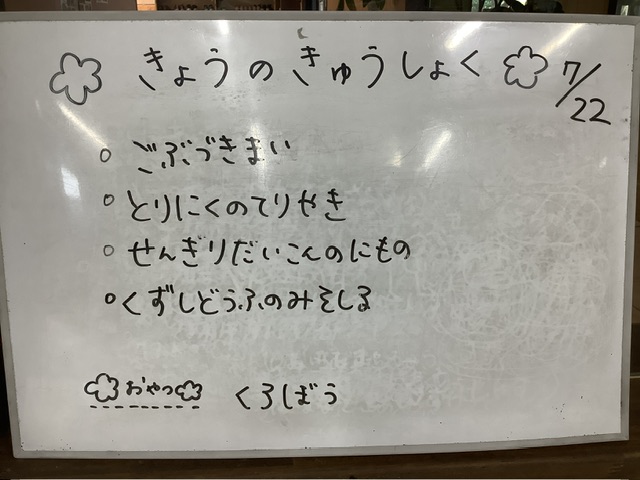 きょうのきゅうしょく 7/22
ごぶづきまい
とりにくのてりやき
せんぎりだいこんのにもの
くずしどうふのみそしる
おやつ くろぼう